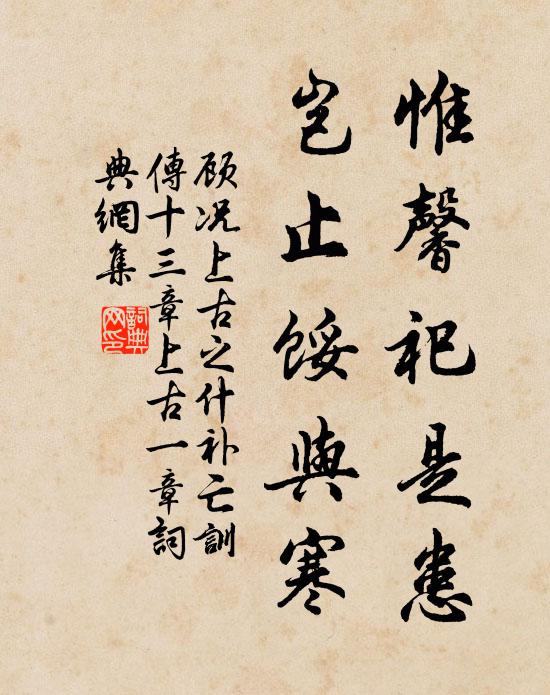 惟馨祀是患
岂止馁與寒
顾况上古之什补亡訓
傳十三章上古一章詞
典網集
詞典
网印